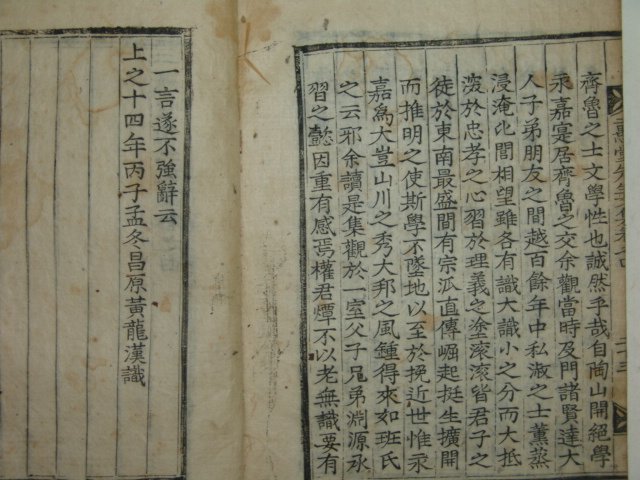 齊魯之士文學性也誠然乎哉自陶山開絕學
永嘉宣居齊魯之交余觀當時及門諸賢達大
人子弟朋友之間越百餘年中私淑之士薰蒸
浸淹此間相望雖各有識大識小之分而大抵
沒於忠孝之心習於理義之塗滚滚皆君子之
徒於東南最盛間有宗派直傳崛起挺生擴開
而推明之使斯學不墜地以至於挽近世惟永
嘉爲大豈山川之秀大邦之風鍾得來如班氏
之云邪余讀是集觀於一室父子兄弟淵源承
習之懿因重有感焉權君㷫不以老無識要有
一言遂不強辭云
上之十四年丙子孟冬昌原黃龍漢識